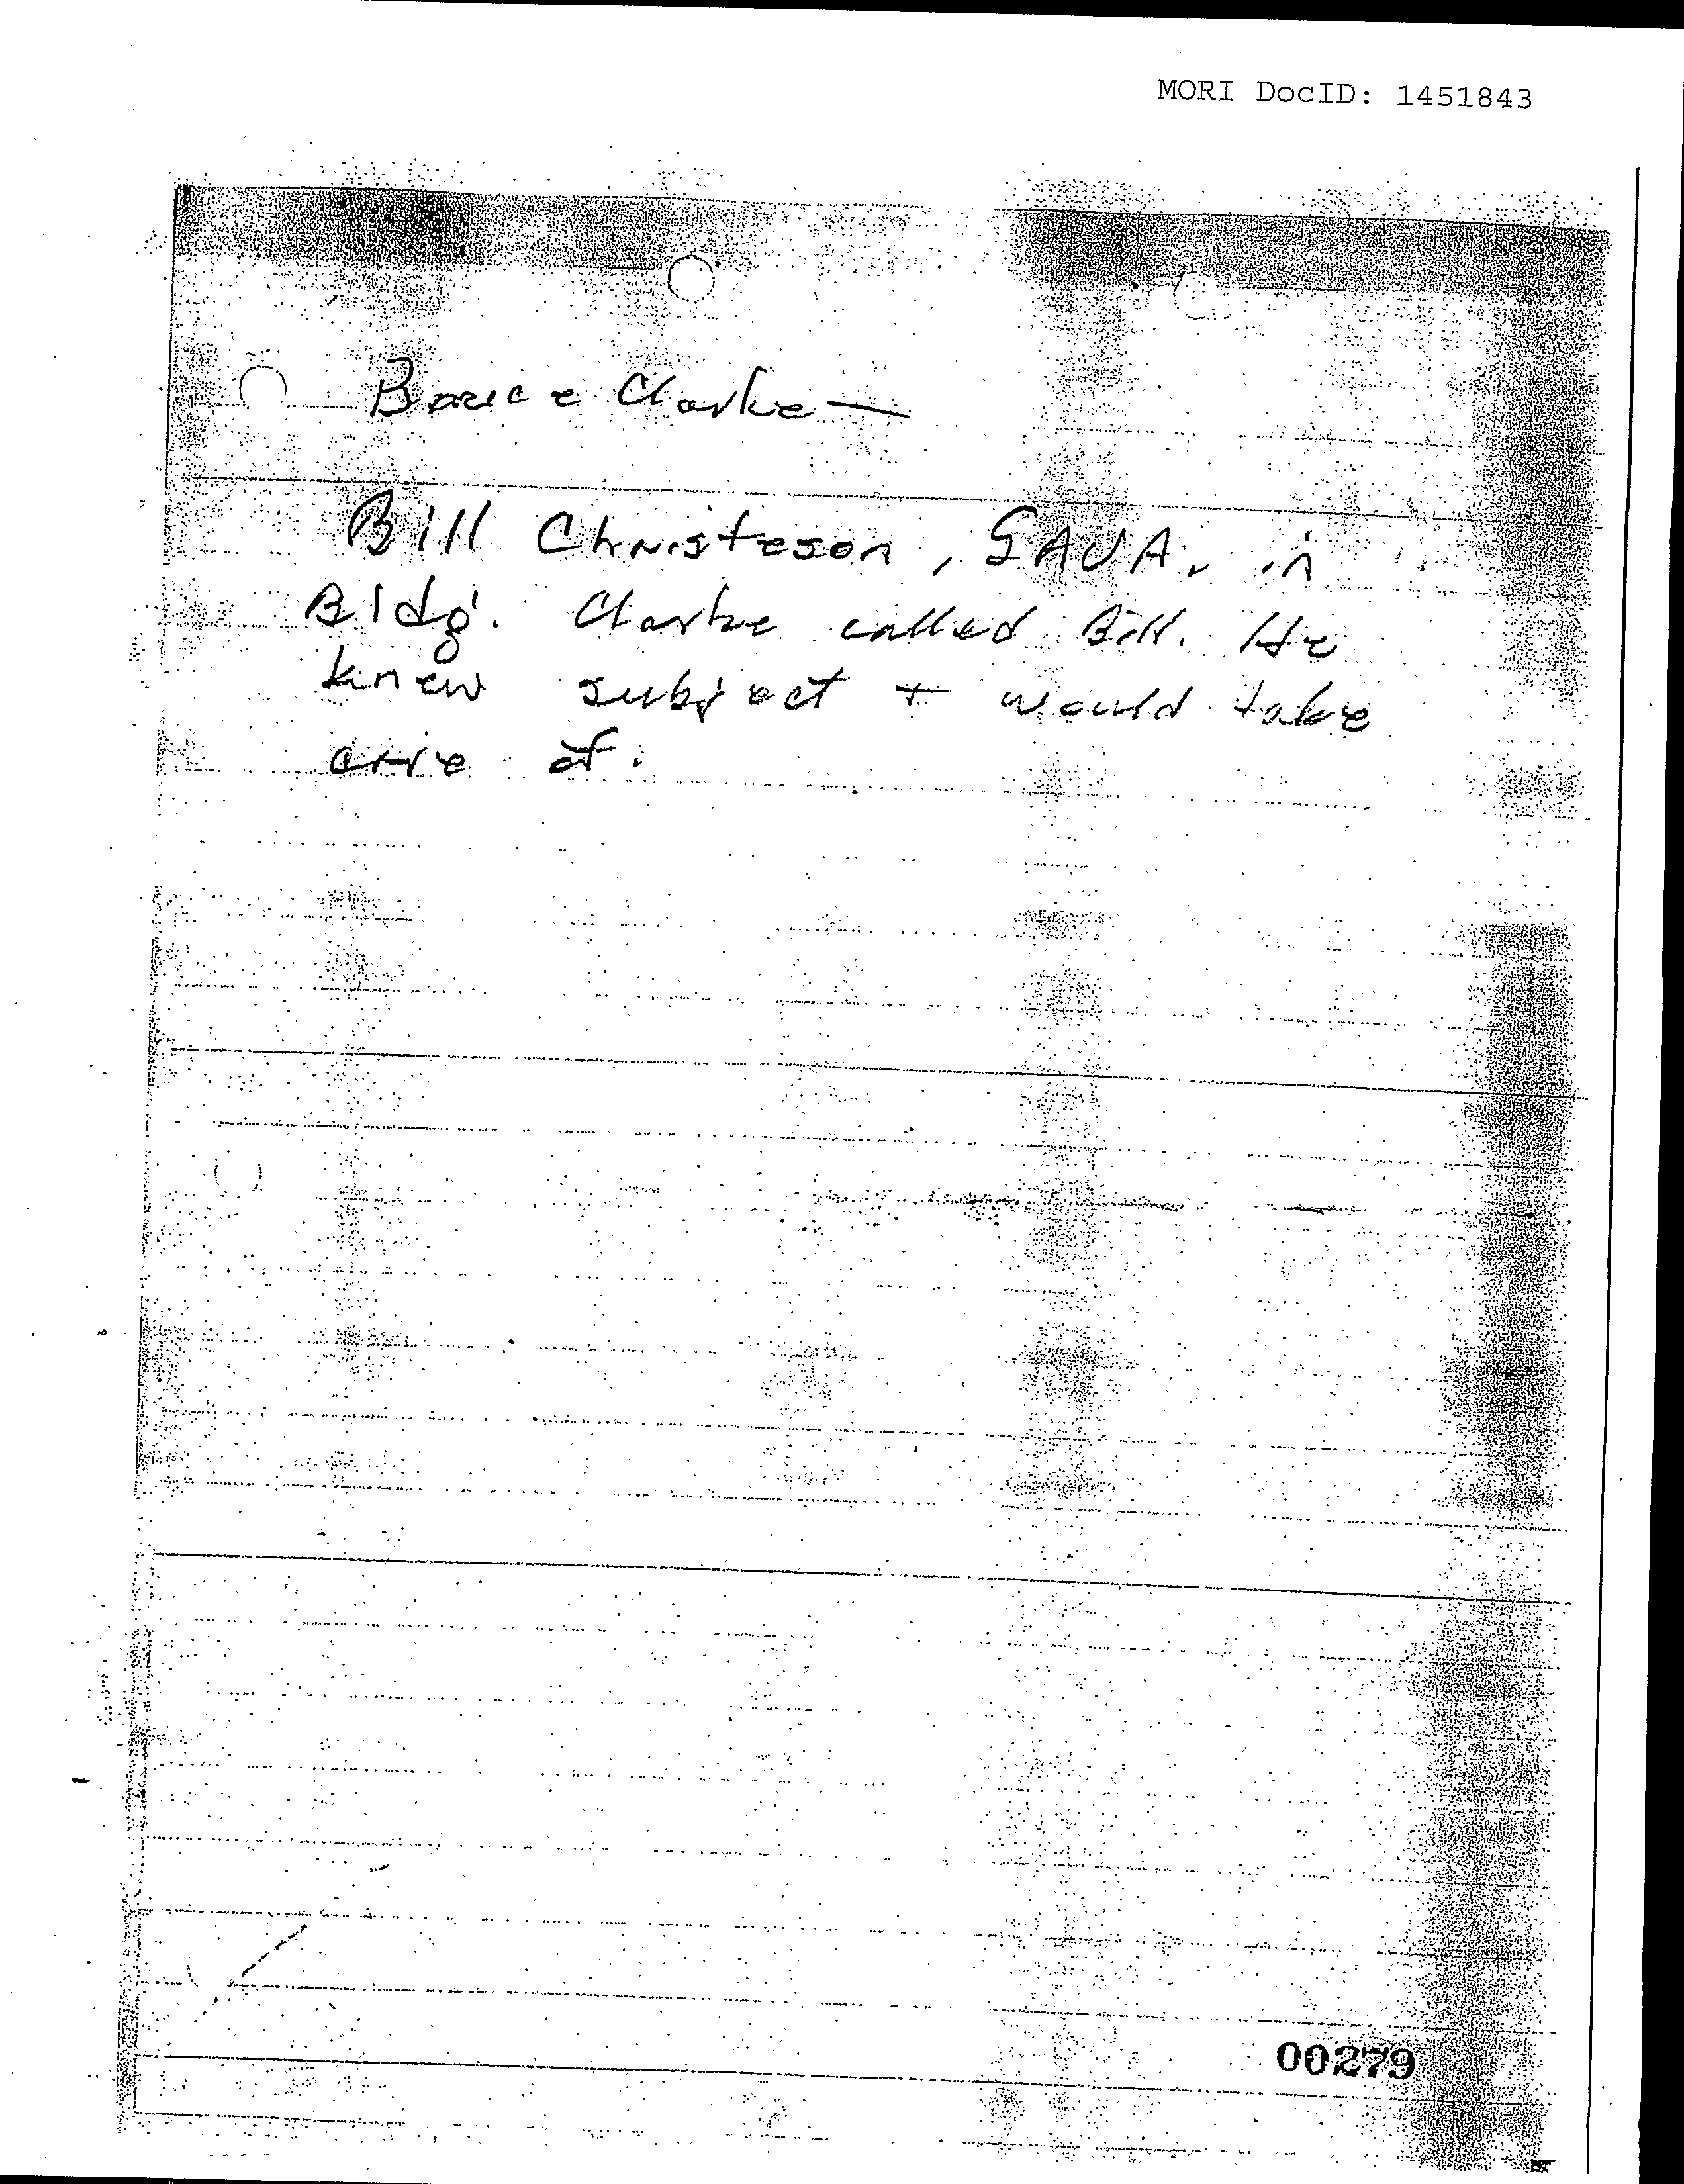 MORI DocID: 1451843
Bruce Clarke —
Bill Christeson, SAVA, in
Bldg. Clarke called Bill. He
knew subject + would take
care of.
00279